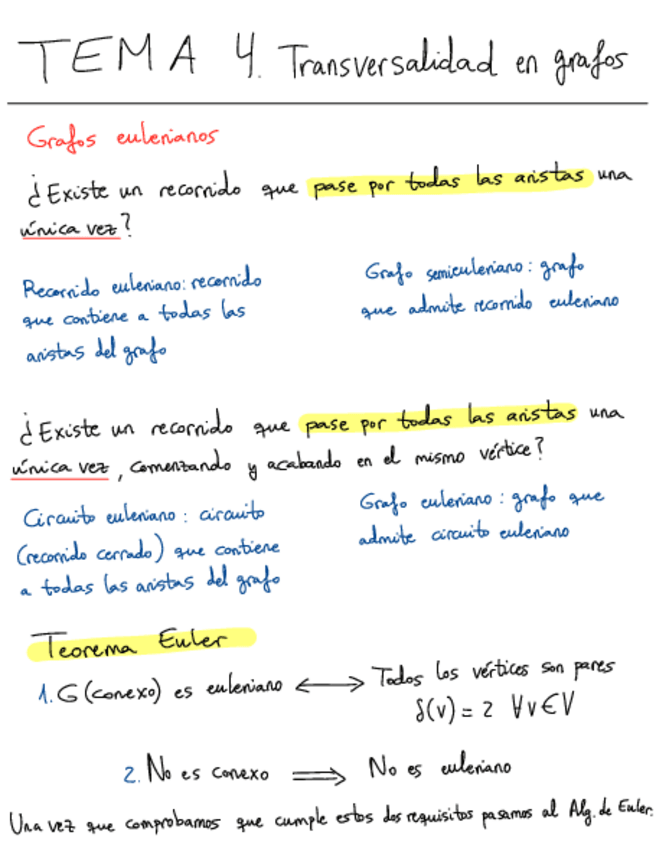 TEMA 4. Transversalidad en grafos
Grafos eulerianos
¿Existe un recorrido que pase por todas las aristas una
única vez?
Recorrido euleriano: recorrido
que contiene a todas las
aristas del grafo
Grafo semieuleriano: grafo
que admite recorrido euleriano
¿Existe un recorrido que pase por todas las aristas una
única vez, comenzando y acabando en el mismo vértice?
Circuito euleriano: circuito
(recorrido cerrado) que contiene
a todas las aristas del grafo
Grafo euleriano: grafo que
admite circuito euleriano
Teorema Euler
1. G (conexo) es euleriano ⟷ Todos los vértices son pares
δ(v) = 2 ∀v∈V
2. No es conexo ⟹ No es euleriano
Una vez que comprobamos que cumple estos dos requisitos pasamos al Alg. de Euler.